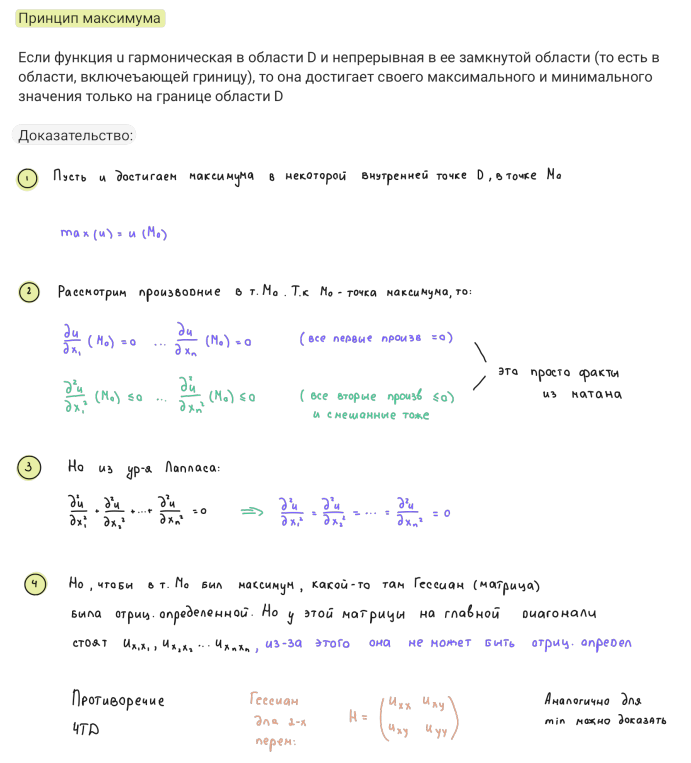 Принцип максимума
Если функция u гармоническая в области D и непрерывная в ее замкнутой области (то есть в
области, включеъающей гриницу), то она достигает своего максимального и минимального
значения только на границе области D
Доказательство:
1 Пусть u достигаем максимума в некоторой внутренней точке D, в точке M₀
max (u) = u (M₀)
2 Рассмотрим производные в т. M₀. Т.к M₀ - точка максимума, то:
∂u/∂x₁ (M₀) = 0 ... ∂u/∂xₙ (M₀) = 0 (все первые произв = 0)
∂²u/∂x₁² (M₀) ≤ 0 ... ∂²u/∂xₙ² (M₀) ≤ 0 (все вторые произв ≤ 0)
и смешанные тоже
это просто факты
из матана
3 Но из ур-я Лапласа:
∂²u/∂x₁² + ∂²u/∂x₂² + ... + ∂²u/∂xₙ² = 0 ⇒ ∂²u/∂x₁² = ∂²u/∂x₂² = ... = ∂²u/∂xₙ² = 0
4 Но, чтобы в т. M₀ был максимум, какой-то там Гессиан (матрица)
была отриц. определенной. Но у этой матрицы на главной диагонали
стоят uₓ₁ₓ₁, uₓ₂ₓ₂ ... uₓₙₓₙ, из-за этого она не может быть отриц. определ
Противоречие
ЧТД
Гессиан
для 2-х
перем:
H = (uₓₓ uₓᵧ
uₓᵧ uᵧᵧ)
Аналогично для
min можно доказать